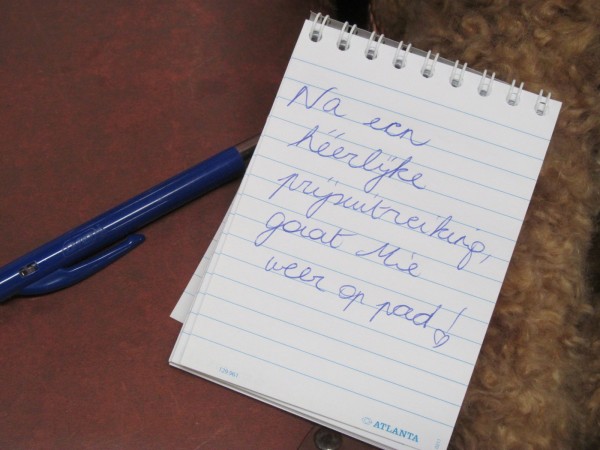 Na een
héérlijke
prijsuitreiking,
gaat Mie
weer op pad!
ATLANTA